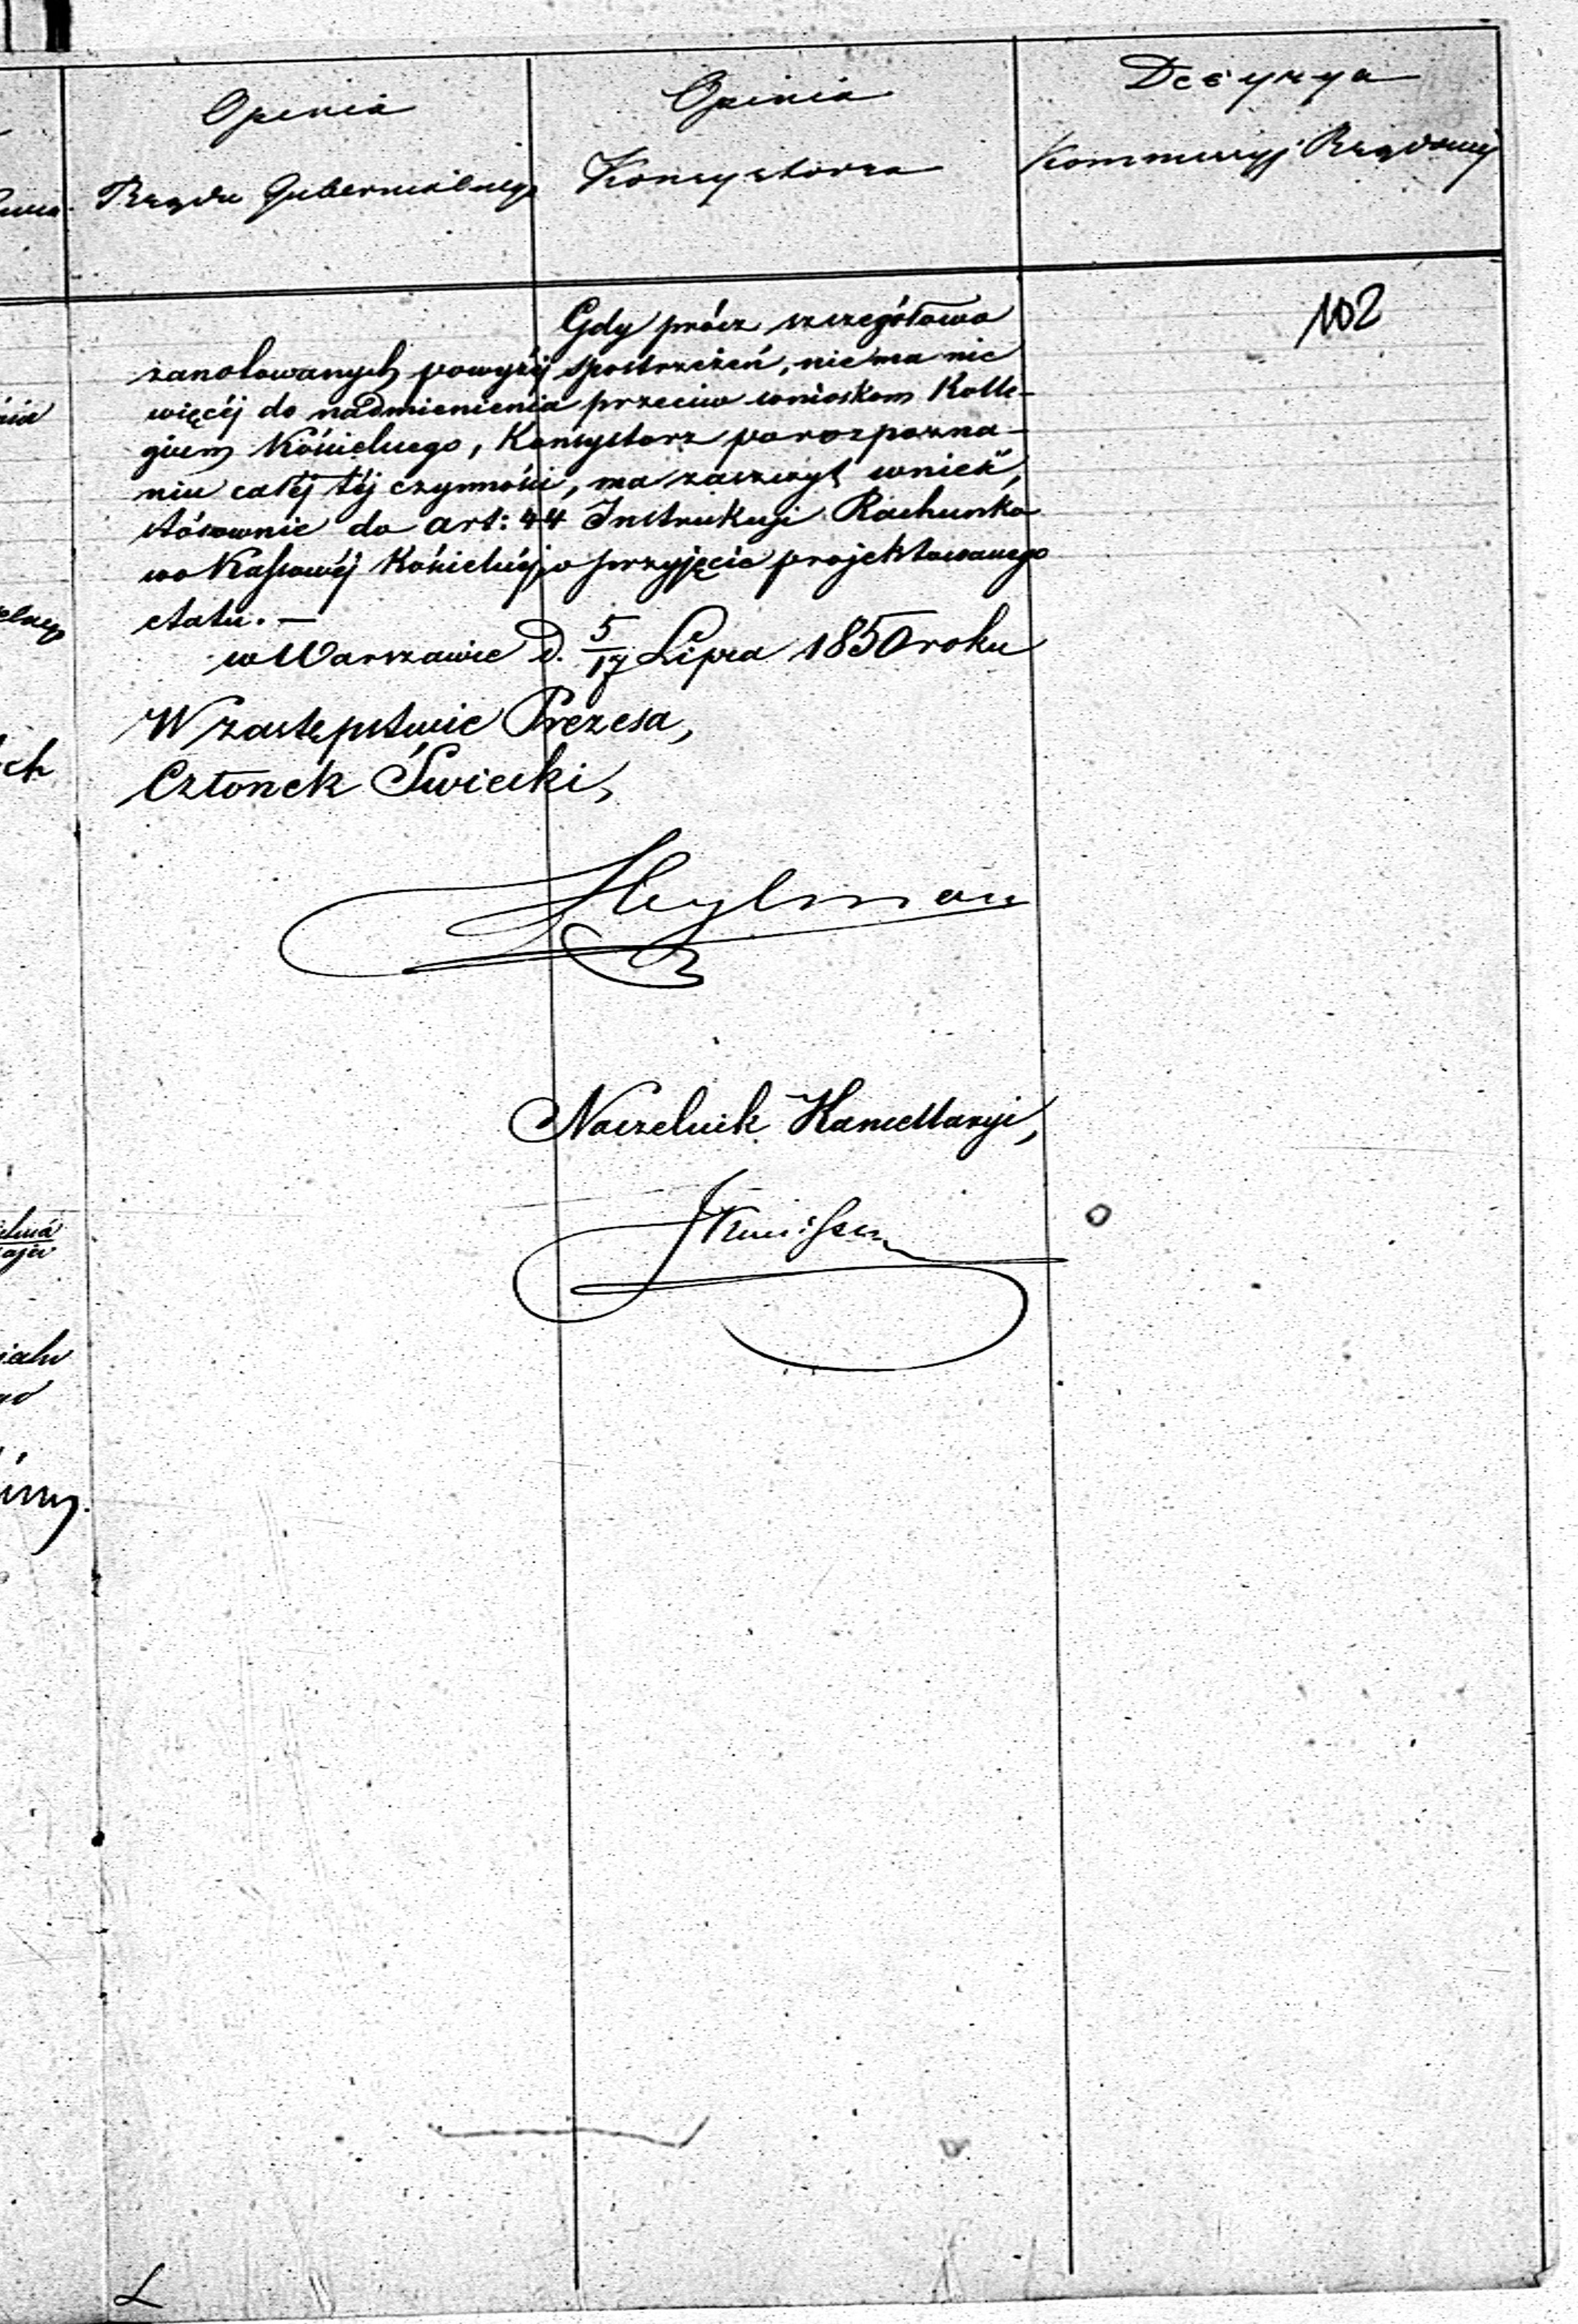 Opinia
Rządu Gubernialnego
Opinia
Konsystorza
Decyzya
Kommissyj Rządowej
102
Gdy prócz szczegółowo
zanotowanych powyżéj spostrzeżeń, niema nic
więcéj do nadmienienia przeciw wnioskom Kolle-
gium Kościelnego, Konsystorz po rozpozna-
niu całéj téj czynności, ma zaszczyt wnieść,
stósownie do art: 44 Instrukcyi Rachunko
wo Kassowéj Kościelnéj, o przyjęcie projektowanego
etatu. —
w Warszawie d. 5/17 Lipca 1850 roku
W zastępstwie Prezesa,
Członek Świecki,
Heylman
Naczelnik Kancellaryi,
L